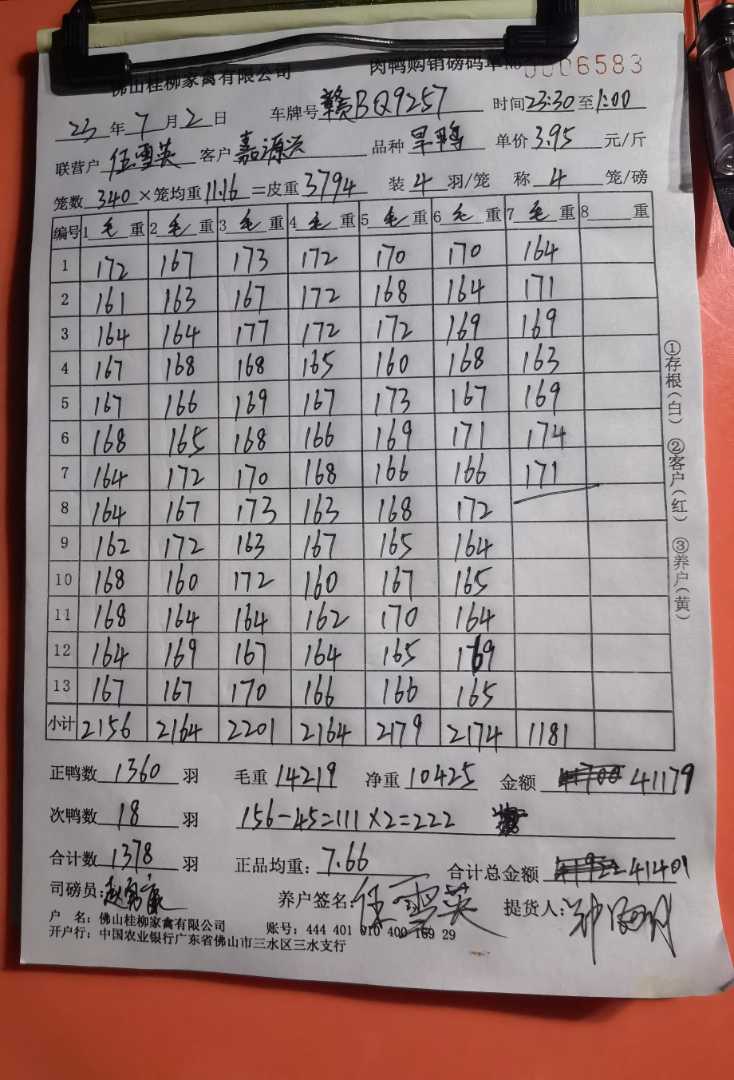 佛山桂柳家禽有限公司 肉鸭购销磅码单 No 0006583
23 年 7 月 2 日 车牌号 赣BQ9257 时间 23:30 至 1:00
联营户 伍雪英 客户 嘉源兴 品种 旱鸭 单价 3.95 元/斤
笼数 340 ×笼均重 11.16 =皮重 3794 装 4 羽/笼 称 4 笼/磅
编号 1 毛 重 2 毛 重 3 毛 重 4 毛 重 5 毛 重 6 毛 重 7 毛 重 8 重
1 172 167 173 172 170 170 164
2 161 163 167 172 168 164 171
3 164 164 177 172 172 169 169
4 167 168 168 165 160 168 163
5 167 166 169 167 173 167 169
6 168 165 168 166 169 171 174
7 164 172 170 168 166 166 171
8 164 167 173 163 168 172
9 162 172 163 167 165 164
10 168 160 172 160 167 165
11 168 164 164 162 170 164
12 164 169 167 164 165 169
13 167 167 170 166 166 165
小计 2156 2164 2201 2164 2179 2174 1181
正鸭数 1360 羽 毛重 14219 净重 10425 金额 41179
次鸭数 18 羽 156-45=111×2=222
合计数 1378 羽 正品均重: 7.66 合计总金额 41401
司磅员: 养户签名: 伍雪英 提货人:
户 名: 佛山桂柳家禽有限公司 账号: 444 401 010 400 169 29
开户行: 中国农业银行广东省佛山市三水区三水支行
①存根(白) ②客户(红) ③养户(黄)